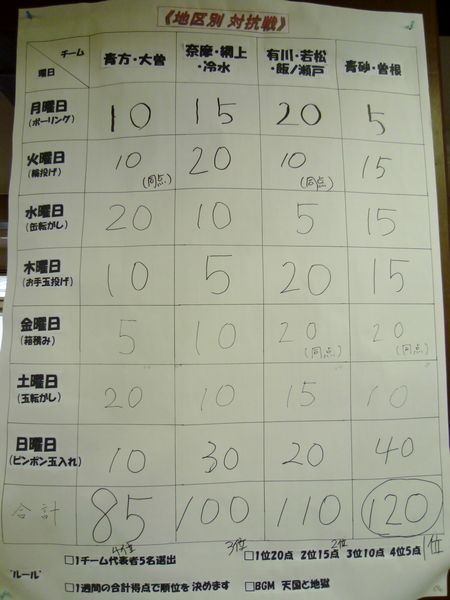 《地区別 対抗戦》
チーム
曜日
青方・大曽
奈摩・網上
・冷水
有川・若松
・飯ノ瀬戸
青砂・曽根
月曜日
(ボーリング)
10 15 20 5
火曜日
(輪投げ)
10 20 10 15
(同点) (同点)
水曜日
(缶転がし)
20 10 5 15
木曜日
(お手玉投げ)
10 5 20 15
金曜日
(箱積み)
5 10 20 20
(同点) (同点)
土曜日
(玉転がし)
20 10 15 10
日曜日
(ピンポン玉入れ)
10 30 20 40
合計
85 100 110 120
4位 3位 2位 1位
"ルール"
□1チーム代表者5名選出
□1位20点 2位15点 3位10点 4位5点
□1週間の合計得点で順位を決めます
□BGM 天国と地獄